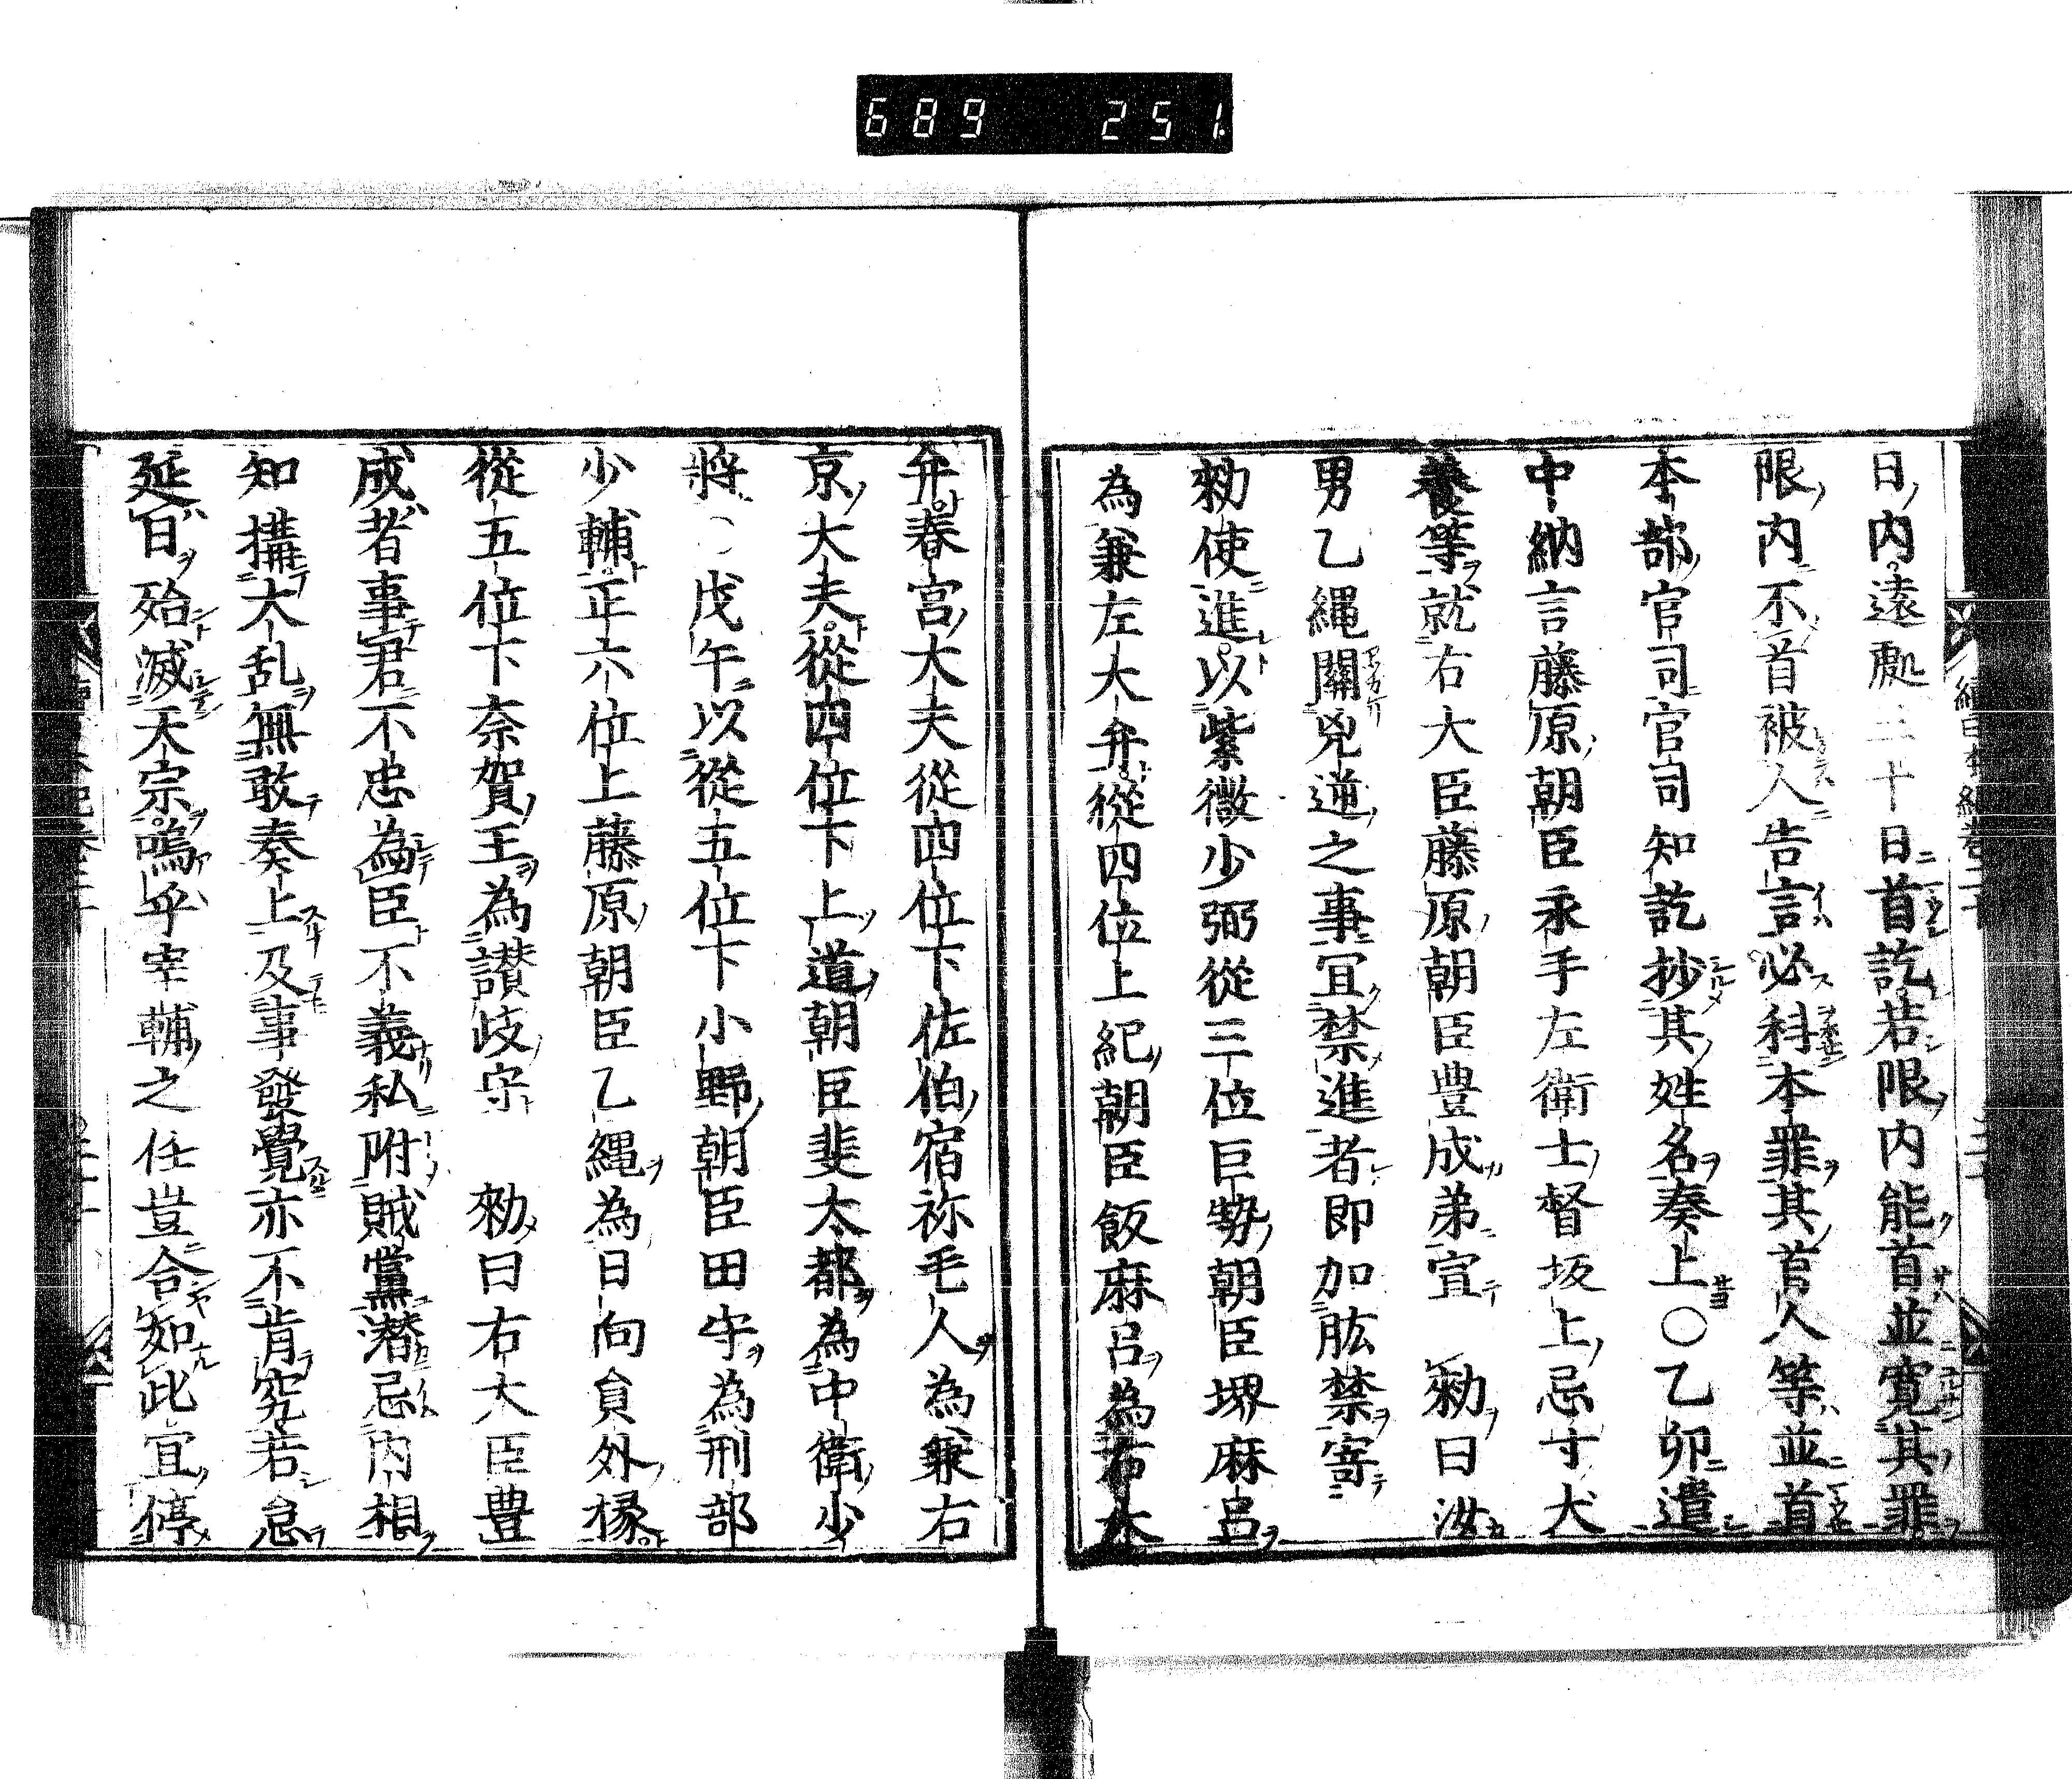 689 251
日内遠處三十日首訖若限内能首並寛其罪
限内不首被人告言必科本罪其首人等並首
本部官司官司知訖抄其姓名奏上○乙卯遣
中納言藤原朝臣永手左衛士督坂上忌寸犬
養等就右大臣藤原朝臣豊成弟宣 勅曰汝
男乙縄關兇逆之事宜禁進者即加肱禁寄
勅使進以紫微少弼從三位巨勢朝臣堺麻呂
為兼左大弁從四位上紀朝臣飯麻呂為右大
弁春宮大夫從四位下佐伯宿祢毛人為兼右
京大夫從四位下上道朝臣斐太都為中衛少
將○戊午以從五位下小野朝臣田守為刑部
少輔正六位上藤原朝臣乙縄為日向員外掾
從五位下奈賀王為讃岐守 勅曰右大臣豊
成者事君不忠為臣不義私附賊黨潜忌内相
知搆大乱無敢奏上及事發覺亦不肯究若怠
延日殆滅天宗嗚乎宰輔之任豈合如此宜停